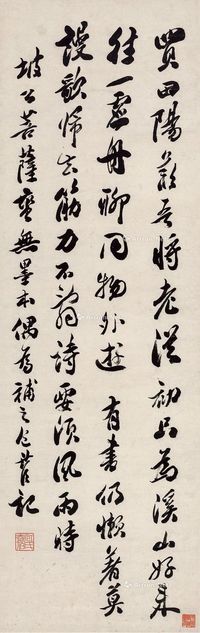 買田陽羨吾將老從初只為溪山好來
往一虛舟聊同物外遊有書仍懶著莫
謾歌歸去筋力不辭詩要須風雨時
坡公菩薩蠻無墨本偶為補之記